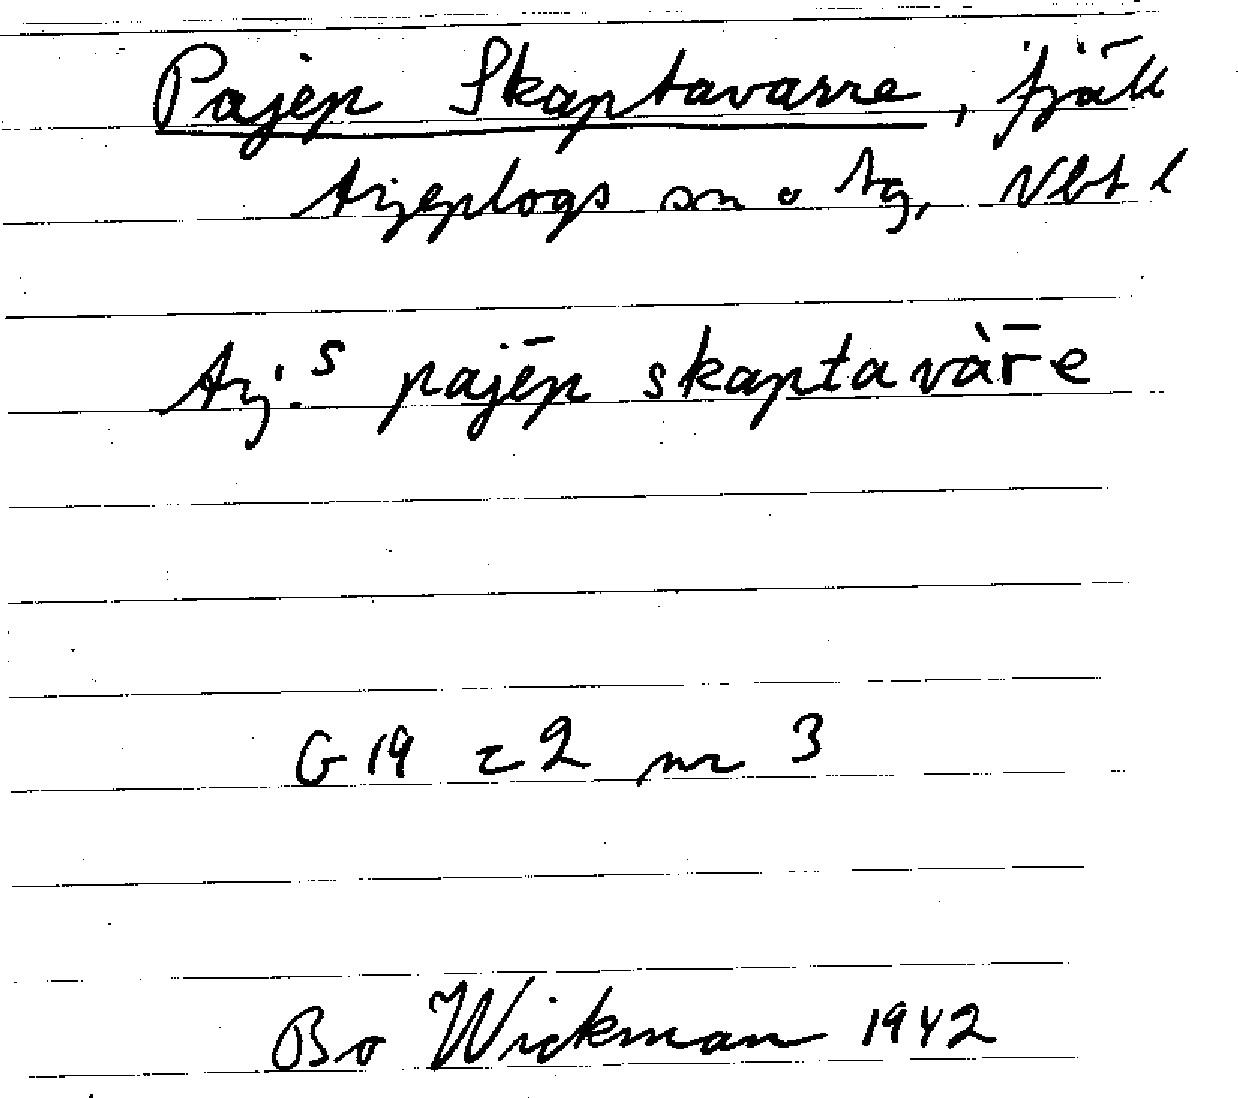 Pajep Skaptavarre, fjäll
Arjeplogs sn o tg, Vbt l
Arj.S pajēp skaptavàr̄e
G 19 c 2 nr 3
Bo Wickman 1942